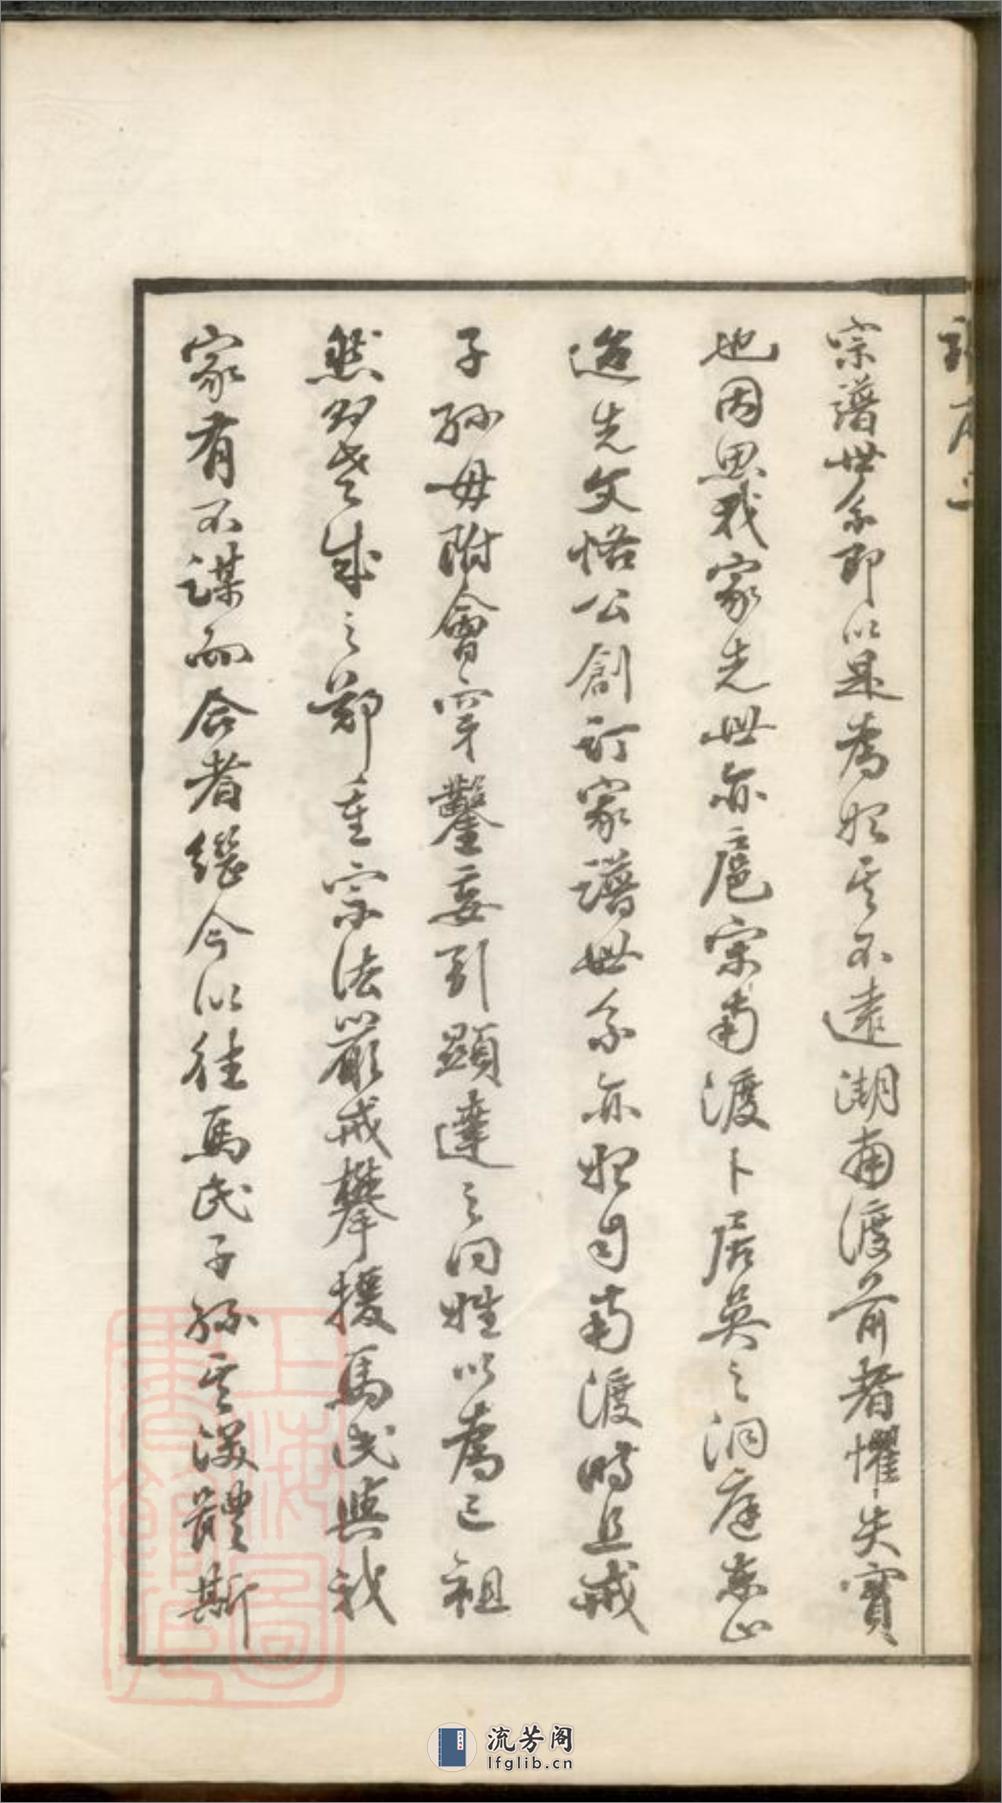 新序二
宗譜世系即以是為始其不遠溯南渡前者懼失實
也因思我家先世亦扈宋南渡卜居吳之洞庭東山
迨先文恪公創訂家譜世系亦始自南渡時且戒
子孫毋附會穿鑿妄引顯達之同姓以為己祖
然則譜之鄭重宗法嚴戒攀援馬氏與我
家有不謀而合者繼今以往馬氏子孫其深體斯
上海圖書館藏
流芳阁
lfglib.cn